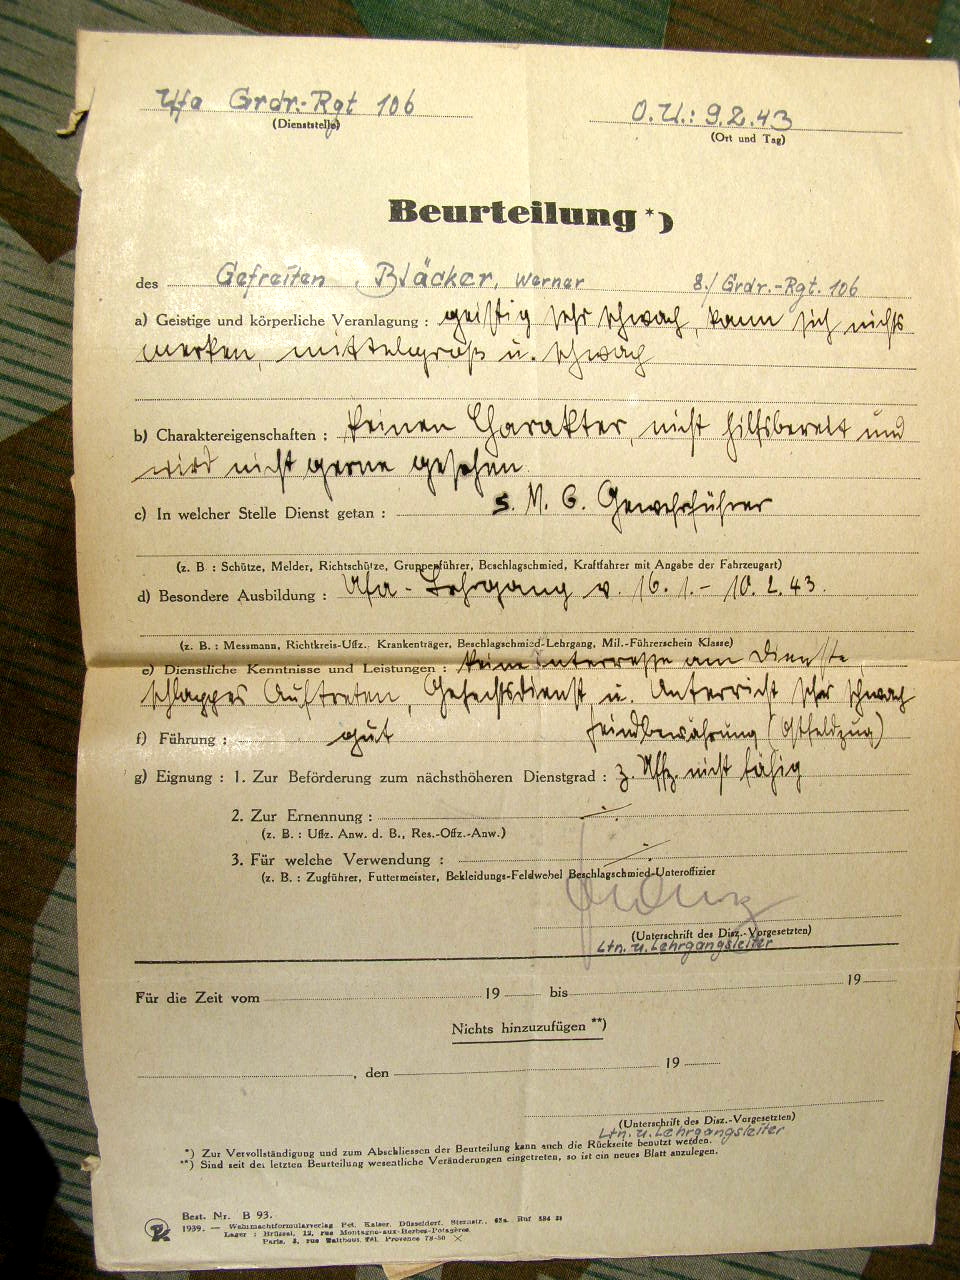 Ufa Grdr.-Rgt 106
O.U.: 9.2.43
(Dienststelle)
(Ort und Tag)
Beurteilung *)
des Gefreiten Bläcker, Werner 8./Grdr.-Rgt. 106
a) Geistige und körperliche Veranlagung : geistig sehr schwach, kann sich nichts
merken, mittelgroß u. schwach
b) Charaktereigenschaften : keinen Charakter, nicht hilfsbereit und
wird nicht gerne gesehen
c) In welcher Stelle Dienst getan : s. M. G. Gewehrführer
(z. B : Schütze, Melder, Richtschütze, Gruppenführer, Beschlagschmied, Kraftfahrer mit Angabe der Fahrzeugart)
d) Besondere Ausbildung : Ufa-Lehrgang v. 16.1.- 10.2.43.
(z. B. : Messmann, Richtkreis-Uffz., Krankenträger, Beschlagschmied-Lehrgang, Mil.-Führerschein Klasse)
e) Dienstliche Kenntnisse und Leistungen : keine Interresse am Dienste,
schlappes Auftreten, Gefechtsdienst u. Unterricht sehr schwach
f) Führung : gut Feindbewährung (Ostfeldzug)
g) Eignung : 1. Zur Beförderung zum nächsthöheren Dienstgrad : z. Uffz. nicht fähig
2. Zur Ernennung :
(z. B. : Uffz. Anw. d. B., Res.-Offz.-Anw.)
3. Für welche Verwendung :
(z. B. : Zugführer, Futtermeister, Bekleidungs-Feldwebel Beschlagschmied-Unteroffizier
(Unterschrift des Disz.-Vorgesetzten)
Ltn. u. Lehrgangsleiter
Für die Zeit vom 19 bis 19
Nichts hinzuzufügen **)
, den 19
(Unterschrift des Disz.-Vorgesetzten)
Ltn. u. Lehrgangsleiter
*) Zur Vervollständigung und zum Abschliessen der Beurteilung kann auch die Rückseite benutzt werden.
**) Sind seit der letzten Beurteilung wesentliche Veränderungen eingetreten, so ist ein neues Blatt anzulegen.
Best. Nr. B 93.
1939. — Wehrmachtformularverlag Pet. Kaiser, Düsseldorf, Sternstr., Ruf
Lager : Brüssel, 12, rue Montagne-aux-Herbes-Potagères.
Paris, 3, rue Tél. Provence 78-50